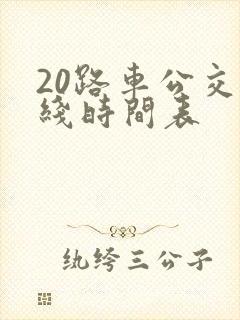 20路車公交
綫時間表
纨绔三公子